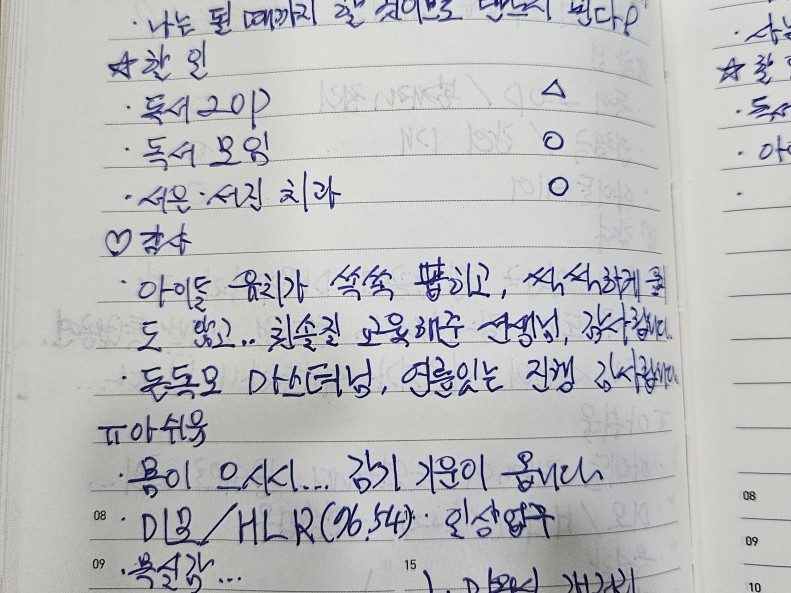 · 나는 될 때까지 할 것이므로 반드시 된다!
☆ 할 일
· 독서 20p △
· 독서 모임 ○
· 서은·서진 치과 ○
♡ 감사
· 아이들 유치가 쏙쏙 뽑히고, 씩씩하게 울
도 않고.. 칫솔질 교육해준 선생님, 감사합니다.
· 돈독모 마스터님, 연륜있는 진행 감사합니다.
ㅠ 아쉬움
· 몸이 으시시... 감기 기운이 옵니다.
08 · / HLR (96.54) ·
09 · 욕실 ...
15
사
☆ 할
· 독서
· 아
·
08
09
10